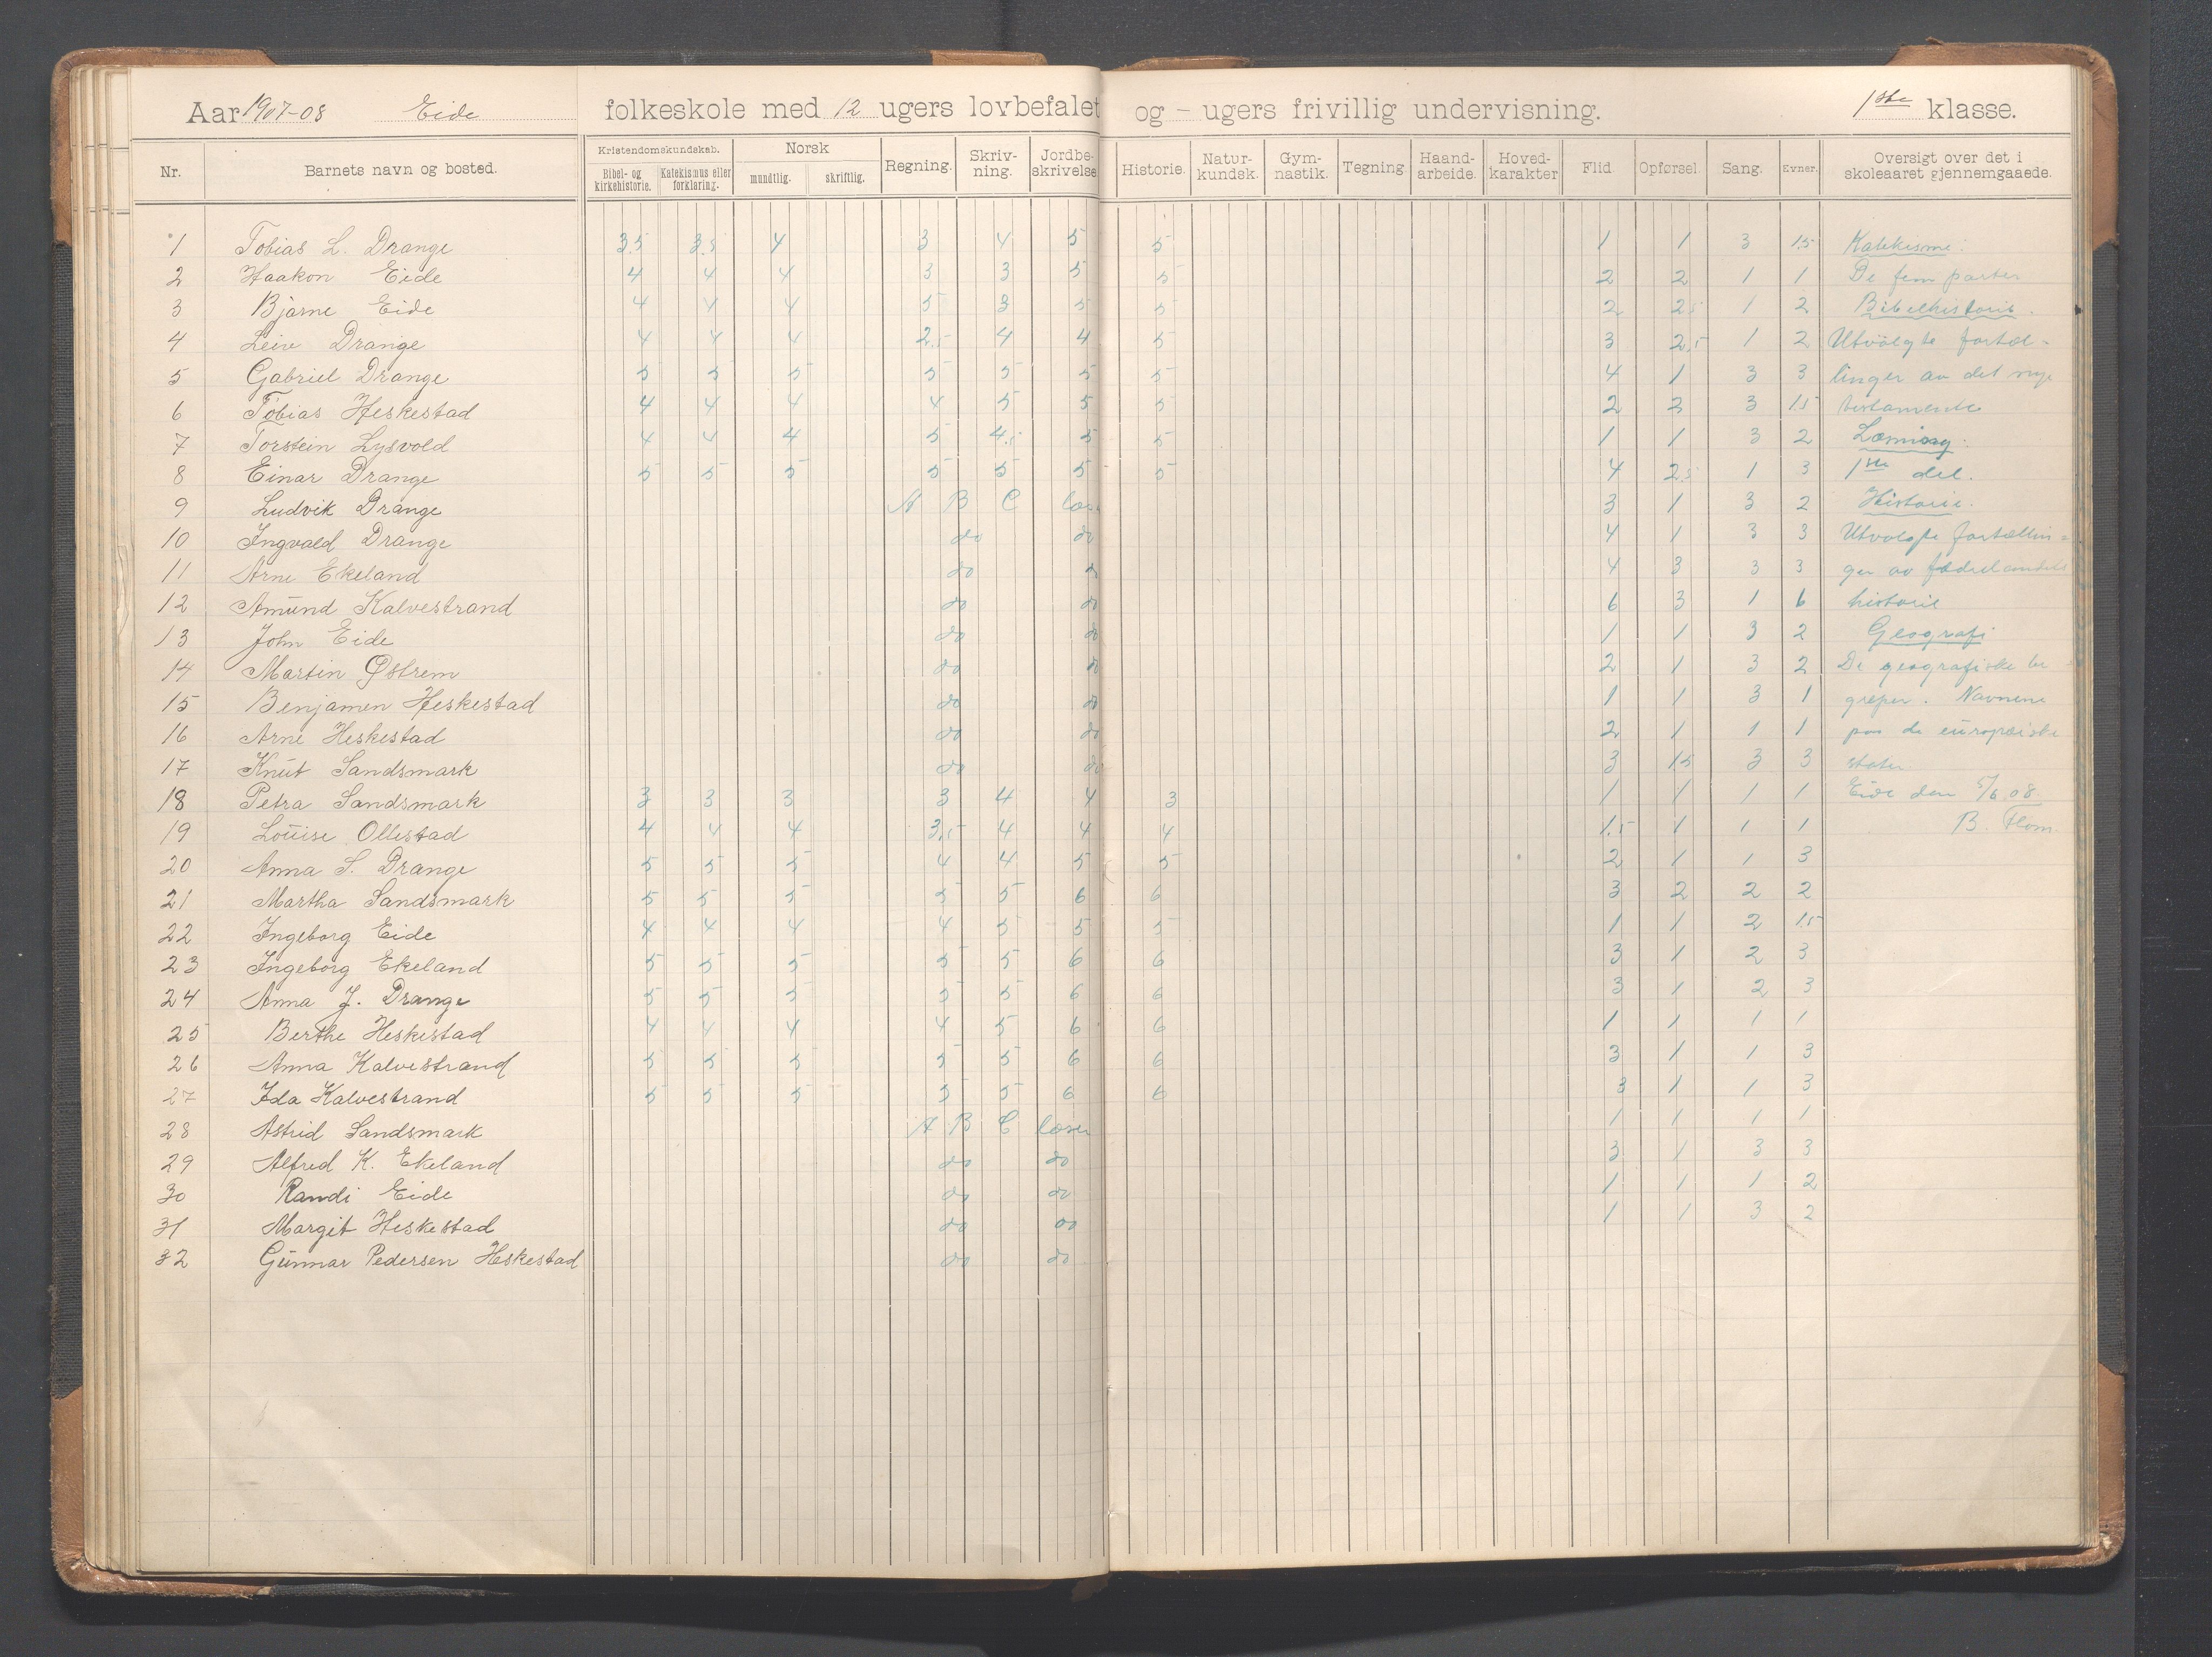 Aar 1907-08 Eide folkeskole med 12 ugers lovbefalet og - ugers frivillig undervisning. 1ste klasse.
Nr. Barnets navn og bosted. Kristendomskundskab. Bibel- og kirkehistorie. Katekismus eller forklaring. Norsk mundtlig. skriftlig. Regning. Skriv-ning. Jordbe-skrivelse Historie. Natur-kundsk. Gym-nastik. Tegning Haand-arbeide. Hoved-karakter Flid Opførsel. Sang. Evner. Oversigt over det i skoleaaret gjennemgaaede.
1 Tobias L. Drange 3.5 3.5 4 3 4 5 5 1 1 3 1.5 Katekisme:
2 Haakon Eide 4 4 4 3 3 5 5 2 2 1 1 De fem parter
3 Bjarne Eide 4 4 4 5 3 5 5 2 2.5 1 2 Bibelhistorie.
4 Leiv Drange 4 4 4 2.5 4 4 5 3 2.5 1 2 Utvalgte fortæl-
5 Gabriel Drange 5 5 5 5 5 5 5 4 1 3 3 linger av det nye
6 Tobias Heskestad 4 4 4 4 5 5 5 2 2 3 1.5 testamente
7 Torstein Lysvold 4 4 4 5 4.5 5 5 1 1 3 2
8 Einar Drange 5 5 5 5 5 5 5 4 2.5 1 3 1ste del.
9 Ludvik Drange A B C læser 3 1 3 2 Historie.
10 Ingvald Drange do do 4 1 3 3 Utvalgte fortællin=
11 Arne Ekeland do do 4 3 3 3 ger av fædrelandets
12 Amund Kalvestrand do do 6 3 1 6 historie
13 John Eide do do 1 1 3 2 Geografi
14 Martin Østrem do do 2 1 3 2 De geografiske be=
15 Benjamen Heskestad do do 1 1 3 1 greper. Navnene
16 Arne Heskestad do do 2 1 1 1 paa de europæiske
17 Knut Sandsmark do do 3 1.5 3 3 stater
18 Petra Sandsmark 3 3 3 3 4 4 3 1 1 1 1 Eide den 5/6 08
19 Louise Ollestad 4 4 4 3.5 4 4 4 1.5 1 1 1 B. Flom.
20 Anna S. Drange 5 5 5 4 4 5 5 2 1 1 3
21 Martha Sandsmark 5 5 5 5 5 6 6 3 2 2 2
22 Ingeborg Eide 4 4 4 4 5 5 5 1 1 2 1.5
23 Ingeborg Ekeland 5 5 5 5 5 6 6 3 1 2 3
24 Anna J. Drange 5 5 5 5 5 6 6 3 1 2 3
25 Berthe Heskestad 4 4 4 4 5 6 6 1 1 1 1
26 Anna Kalvestrand 5 5 5 5 5 6 6 3 1 1 3
27 Ida Kalvestrand 5 5 5 5 5 6 6 3 1 1 3
28 Astrid Sandsmark A B C læser 1 1 1 1
29 Alfred K. Ekeland do do 3 1 3 3
30 Randi Eide do do 1 1 1 2
31 Margit Heskestad do do 1 1 3 2
32 Gunnar Pedersen Heskestad do do